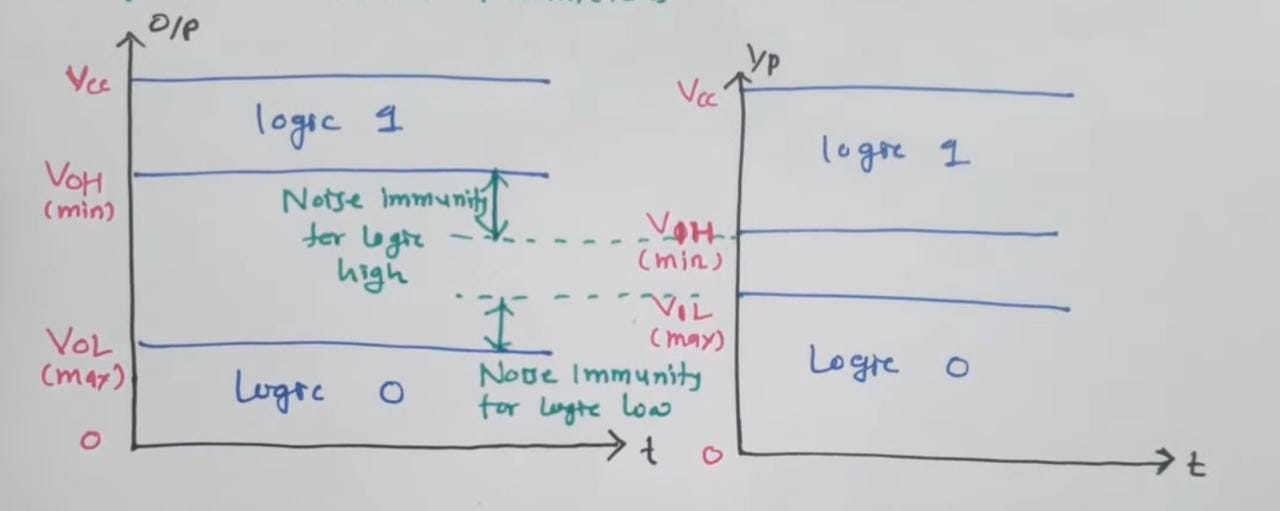 O/P
Vcc
logic 1
VOH
(min)
Noise Immunity
for logic
high
VOL
(max)
Logic 0
Noise Immunity
for logic low
0
t
I/P
Vcc
logic 1
VIH
(min)
VIL
(max)
Logic 0
0
t